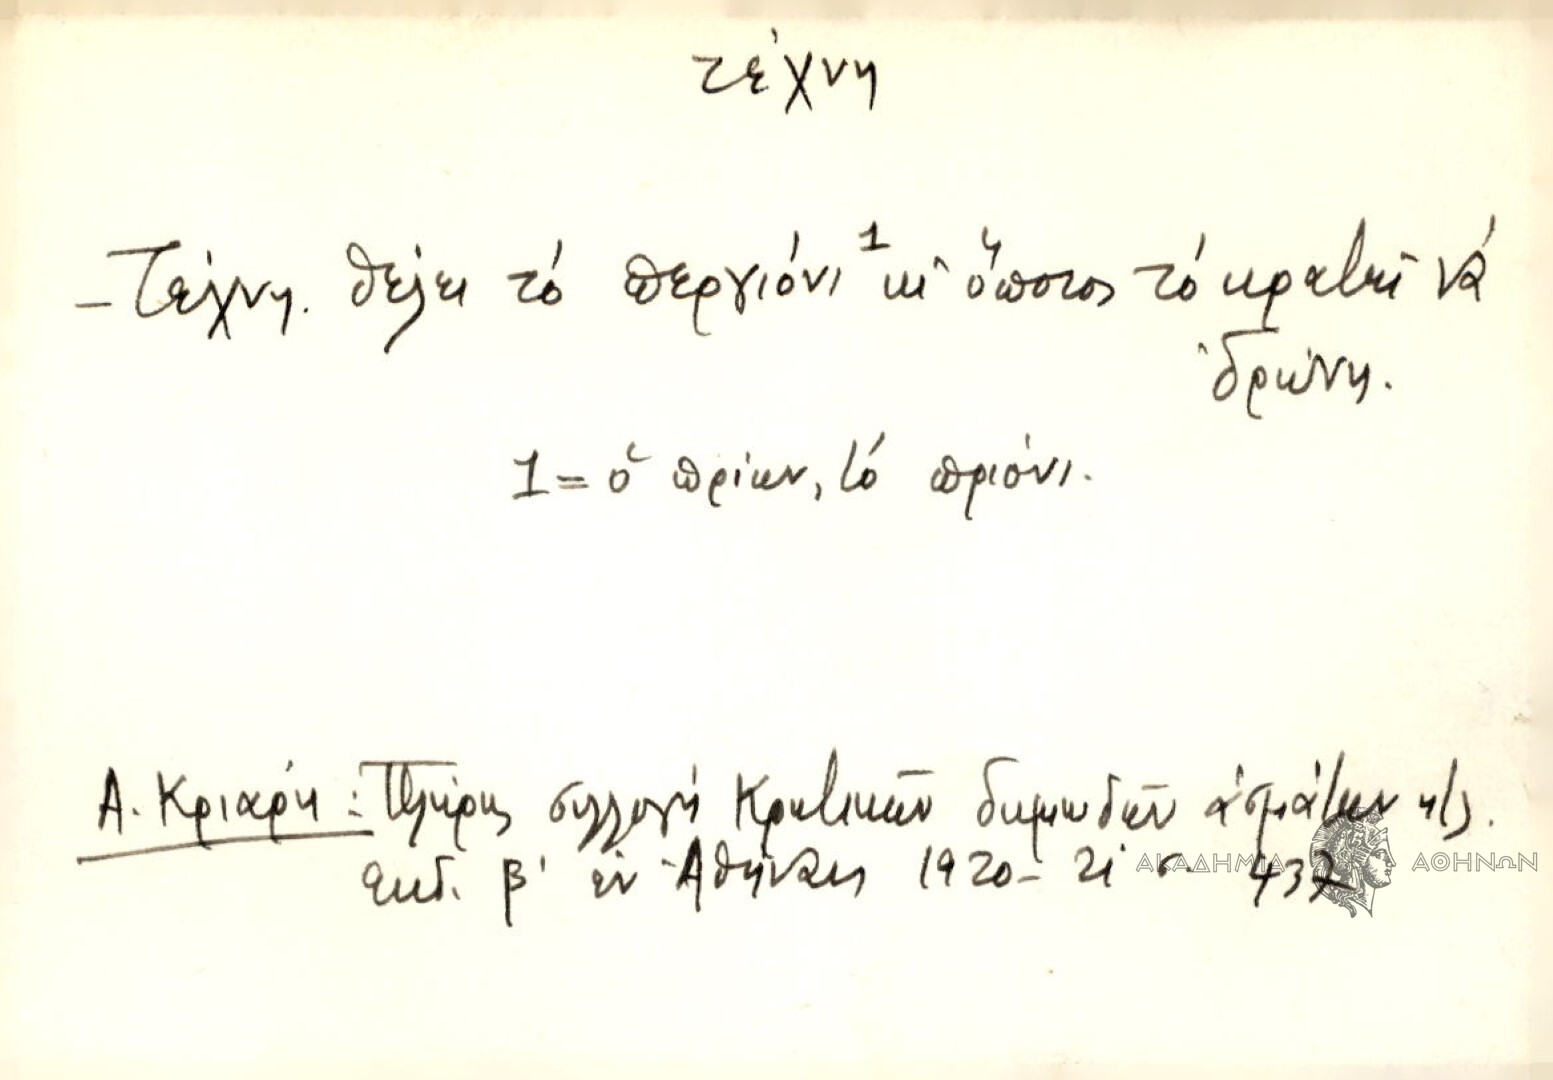 τέχνη
– Τέχνη θέλει τό περγιόνι¹ κι ὅποιος τό κρατεῖ νά
ἱδρώνῃ.
1 = ὁ πρίων, τό πριόνι.
Α. Κριάρη : Πλήρης συλλογή Κρητικῶν δημωδῶν ἀσμάτων κτλ.
ἐκδ. β' ἐν Ἀθήναις 1920 – 21 σ. 437
ΑΚΑΔΗΜΙΑ ΑΘΗΝΩΝ